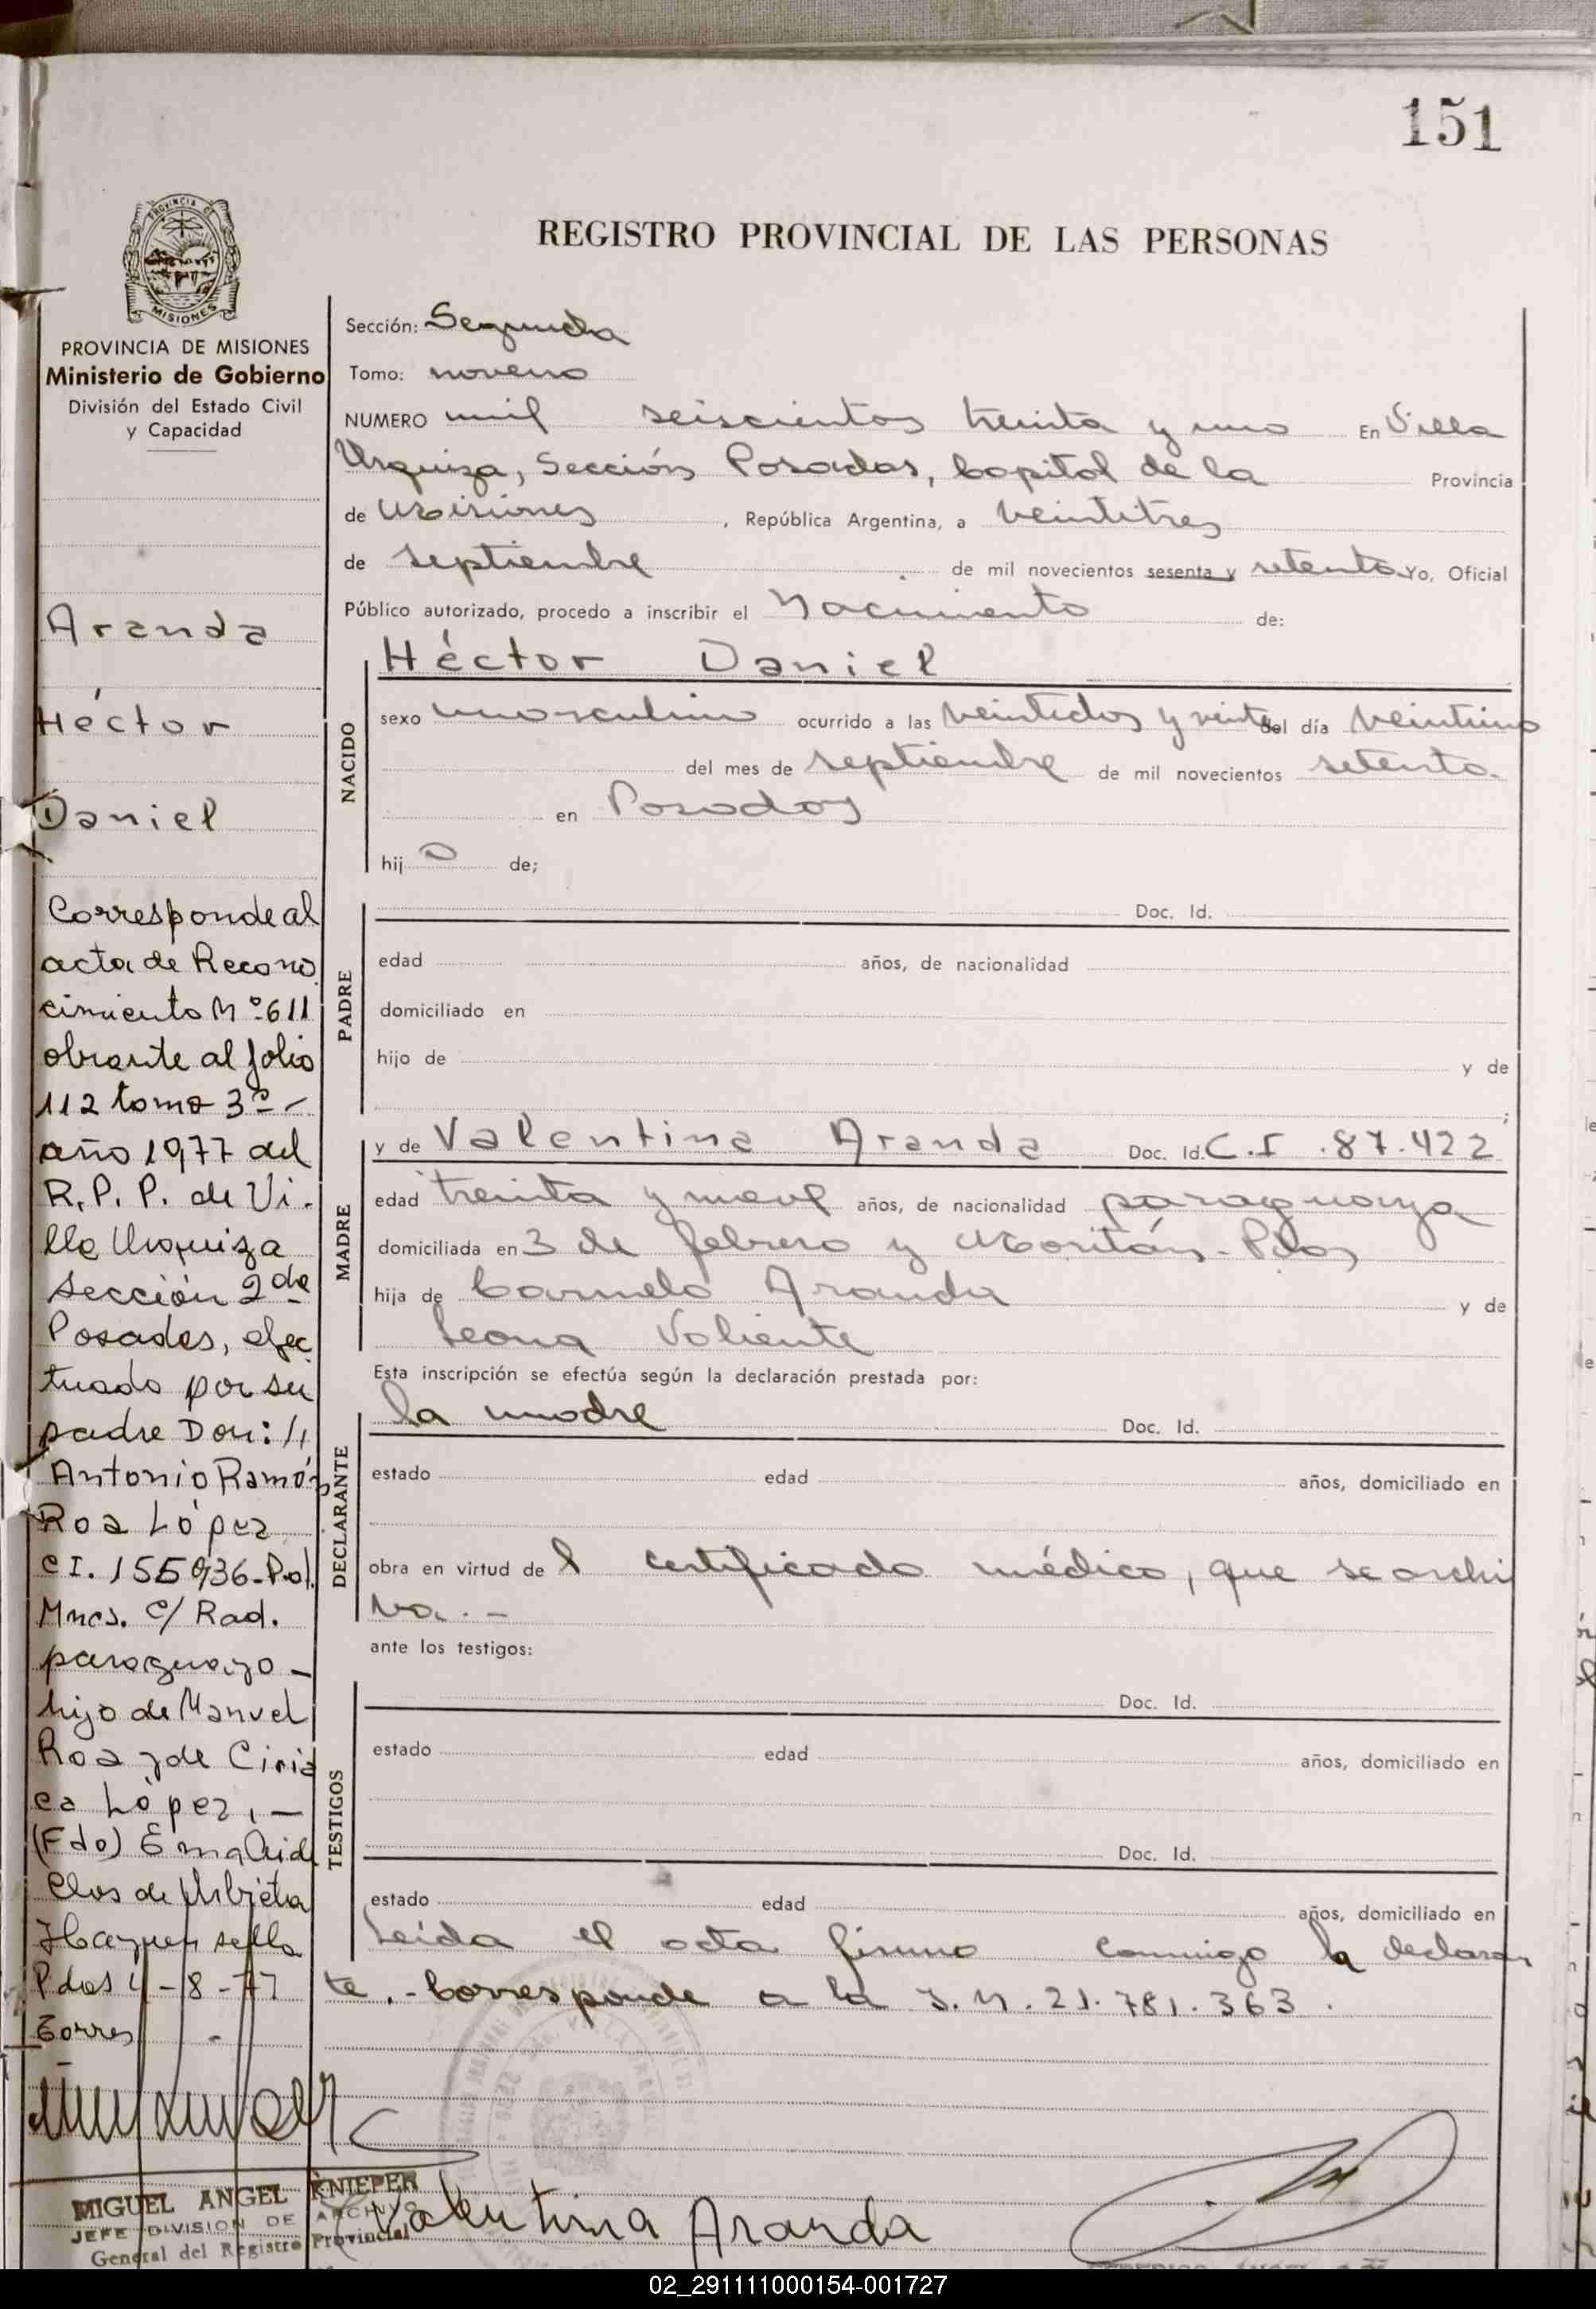 151
REGISTRO PROVINCIAL DE LAS PERSONAS
PROVINCIA DE
MISIONES
PROVINCIA DE MISIONES
Ministerio de Gobierno
División del Estado Civil
y Capacidad
Aranda
Héctor
Daniel
Corresponde al
acta de Recono
cimiento Nº 611
obrante al folio
112 tomo 3º -
año 1977 del
R. P. P. de Vi.
lla Urquiza
sección 2da
Posadas, efec
tuado por su
padre Don: //
Antonio Ramón
Roa López
CI. 155936-Pol.
Mnes. c/ Rad.
paraguayo -
hijo de Manuel
Roa y de Ciria
ca López, -
(Fdo) Ema
Clos de Urbieta
Hay un sello
Pdas 4-8-77
Torres
MIGUEL ANGEL KNIEPER
JEFE DIVISION DE ARCHIVO
General del Registro Provincial
Sección: Segunda
Tomo: noveno
NUMERO mil seiscientos treinta y uno En Villa
Urquiza, Sección Posadas, Capital de la Provincia
de Misiones, República Argentina, a veintitres
de septiembre de mil novecientos sesenta y setenta Yo, Oficial
Público autorizado, procedo a inscribir el Nacimiento de:
NACIDO
Héctor Daniel
sexo masculino ocurrido a las veintidos y veinte del día veintiuno
del mes de septiembre de mil novecientos setenta.
en Posadas
hij o de;
PADRE
Doc. Id.
edad años, de nacionalidad
domiciliado en
hijo de y de
;
MADRE
y de Valentina Aranda Doc. Id. C.I .87.422
edad treinta y nueve años, de nacionalidad paraguaya
domiciliada en 3 de febrero y Moritán - Pdas
hija de Carmelo Aranda y de
Leona Valiente
Esta inscripción se efectúa según la declaración prestada por:
DECLARANTE
la madre Doc. Id.
estado edad años, domiciliado en
obra en virtud de l certificado médico, que se archi
va. -
ante los testigos:
TESTIGOS
Doc. Id.
estado edad años, domiciliado en
Doc. Id.
estado edad años, domiciliado en
Leída el acta firma conmigo la declaran
te. - Corresponde a la I.N. 21.781.363.
Valentina Aranda
02_291111000154-001727